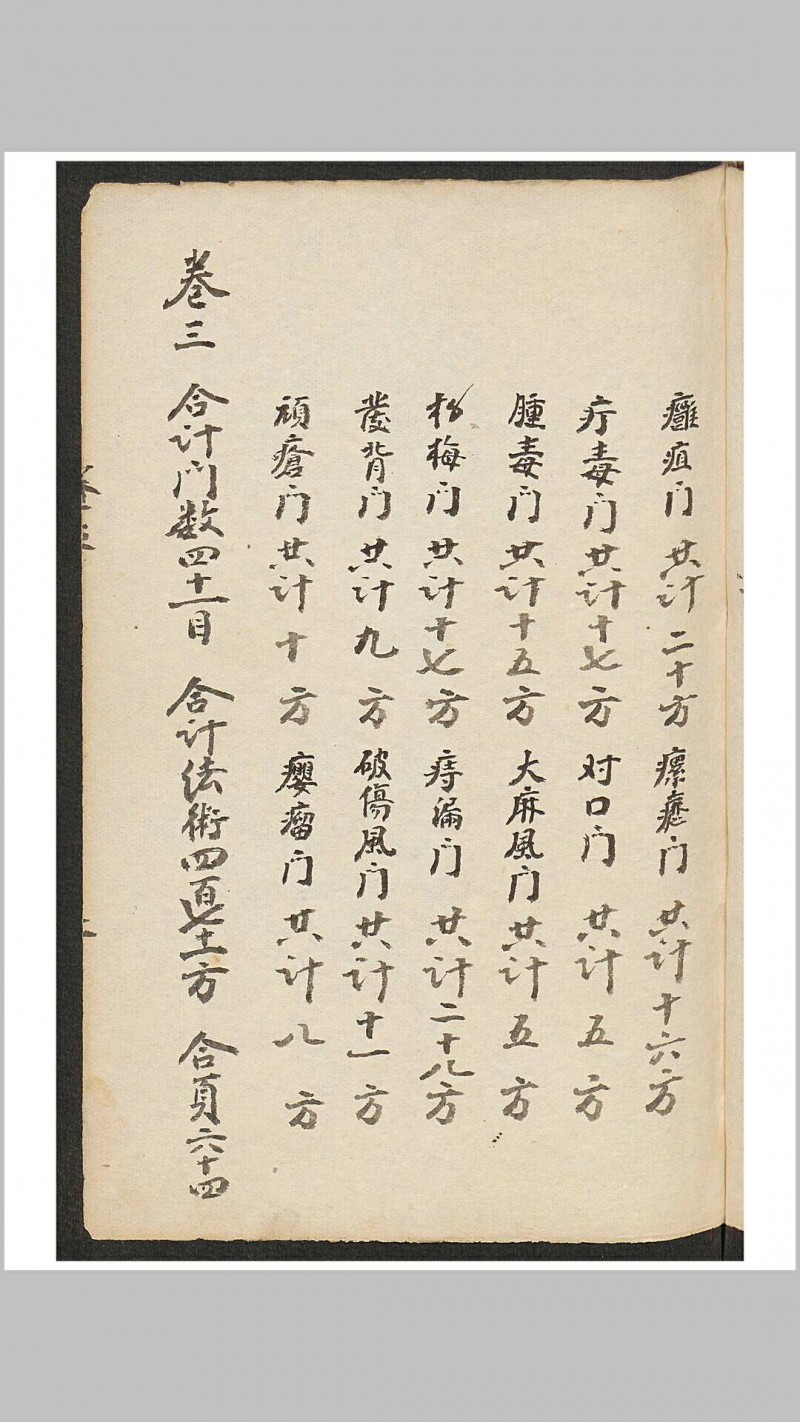 癰疽门 共计二十方 瘰癧门 共计十六方
疔毒门 共计十七方 对口门 共计五方
腫毒门 共计十五方 大麻風门 共计五方
杨梅门 共计十七方 痔漏门 共计二十八方
發背门 共计九方 破傷風门 共计十一方
頑瘡门 共计十方 瘿瘤门 共计八方
卷三 合计门数四十一目 合计法術四百七十一方 合頁六十四